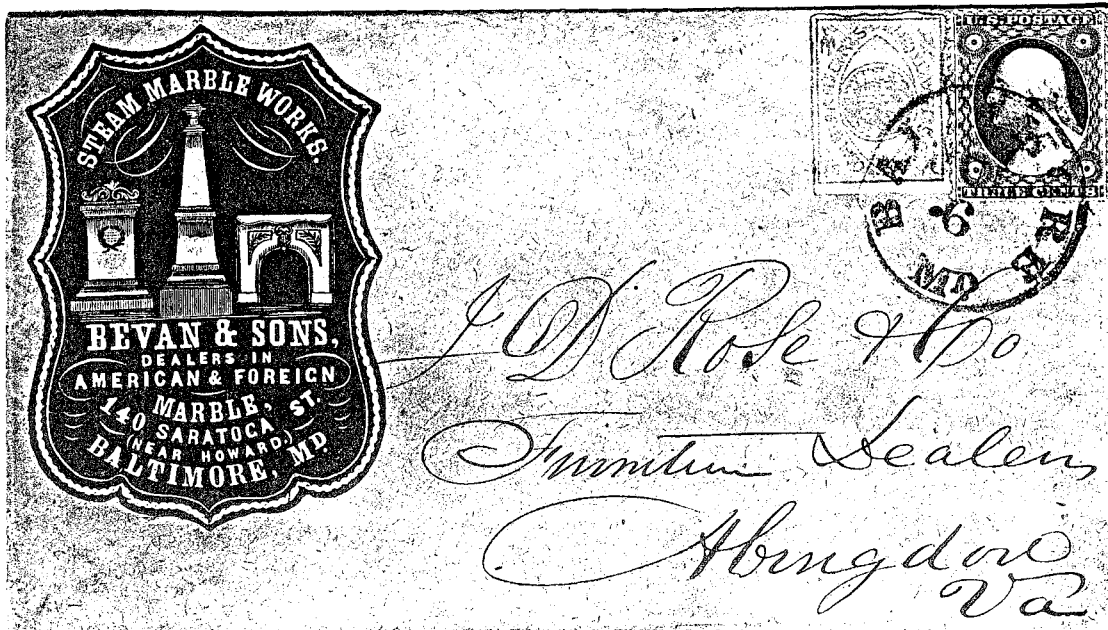 STEAM MARBLE WORKS.
BEVAN & SONS,
DEALERS IN
AMERICAN & FOREIGN
MARBLE,
140 SARATOGA ST.
(NEAR HOWARD.)
BALTIMORE, MD.
U.S. POSTAGE
THREE CENTS
6
MD
J D Rose & Co
Furniture Dealers
Abingdon
Va